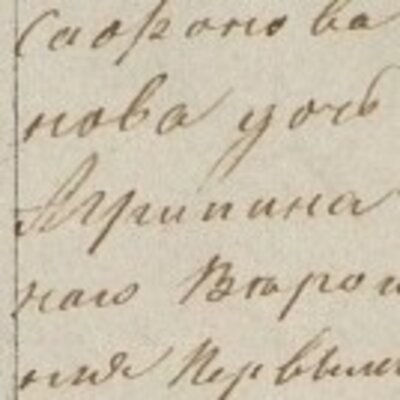 Сафонова
нова дочь
Агрипина
наго Вторы
ния Первым